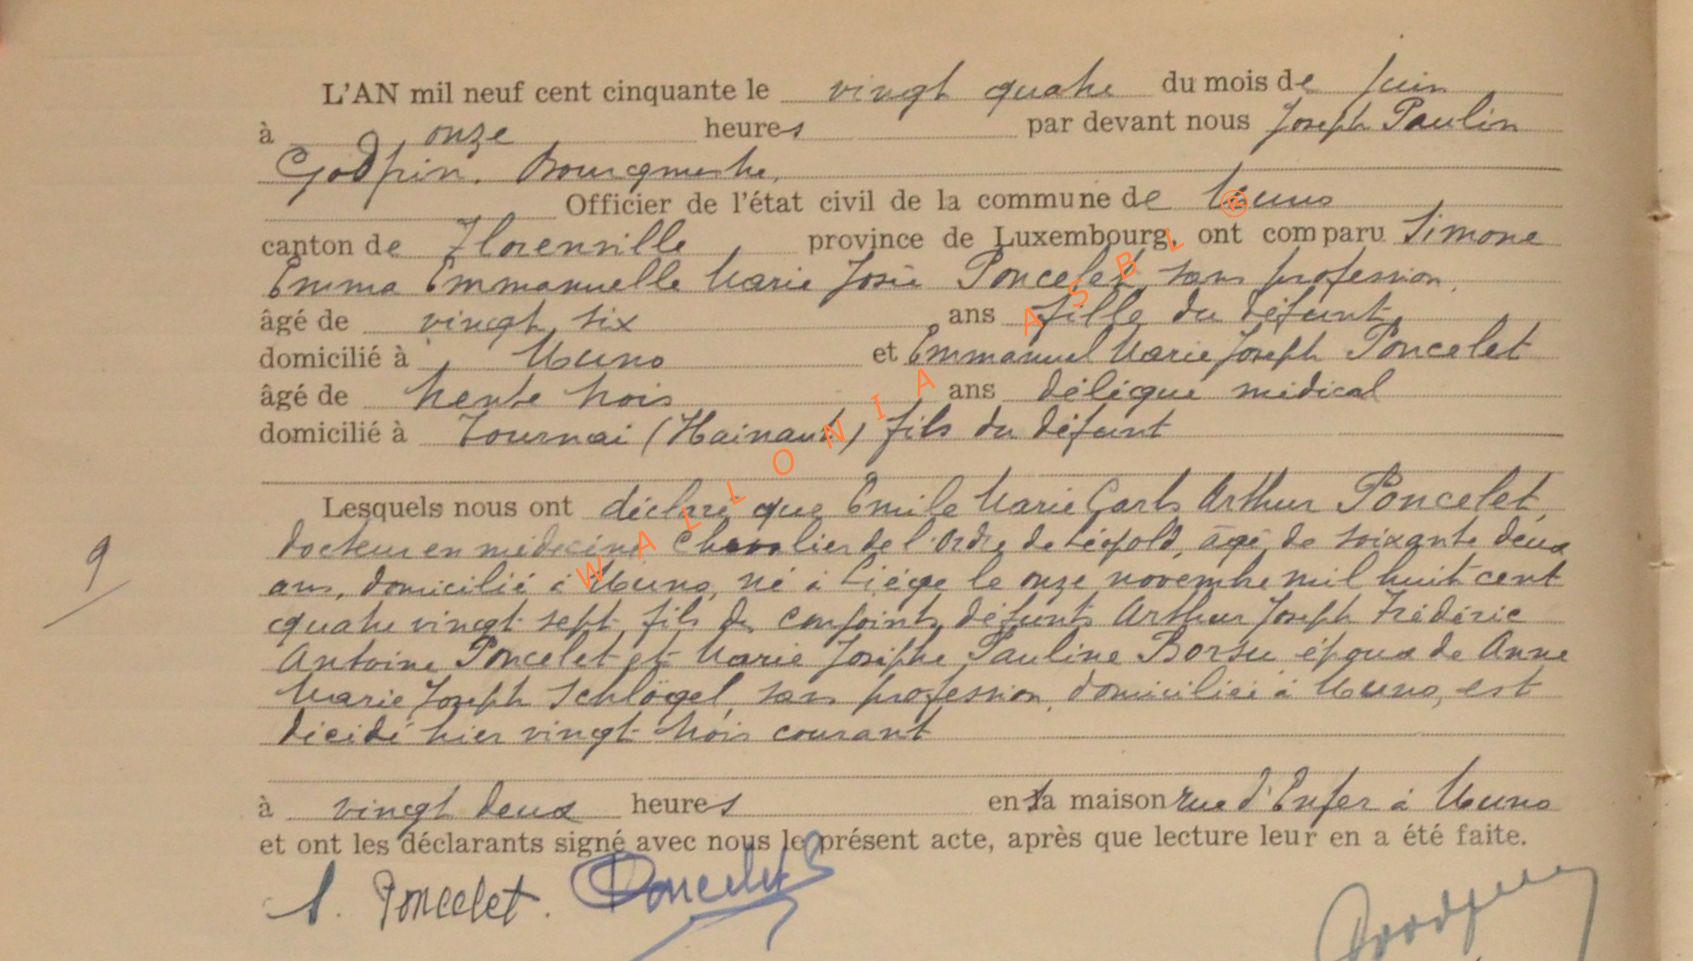 L'AN mil neuf cent cinquante le vingt quatre du mois de Juin
à onze heures par devant nous Joseph Paulin
Godfrin. Bourgmestre,
Officier de l'état civil de la commune de Muno
canton de Florenville, province de Luxembourg, ont comparu Simone
Emma Emmanuelle Marie Josée Poncelet, sans profession,
âgé de vingt six ans fille du défunt,
domicilié à Muno et Emmanuel Marie Joseph Poncelet
âgé de trente trois ans délégué médical
domicilié à Tournai (Hainaut) fils du défunt
Lesquels nous ont déclaré que Emile Marie Carls Arthur Poncelet,
docteur en médecine Chevalier de l'Ordre de Léopold, âgé de soixante deux
ans, domicilié à Muno, né à Liége le onze novembre mil huit cent
9
quatre vingt sept, fils des conjoints défunts Arthur Joseph Frédéric
Antoine Poncelet et Marie Josèphe Pauline Borsu époux de Anne
Marie Joseph Schlögel, sans profession, domiciliée à Muno, est
décédé hier vingt trois courant
à vingt deux heures en sa maison rue d'Enfer à Muno
et ont les déclarants signé avec nous le présent acte, après que lecture leur en a été faite.
S. Poncelet. Poncelet
WALLONIA ASBL ®